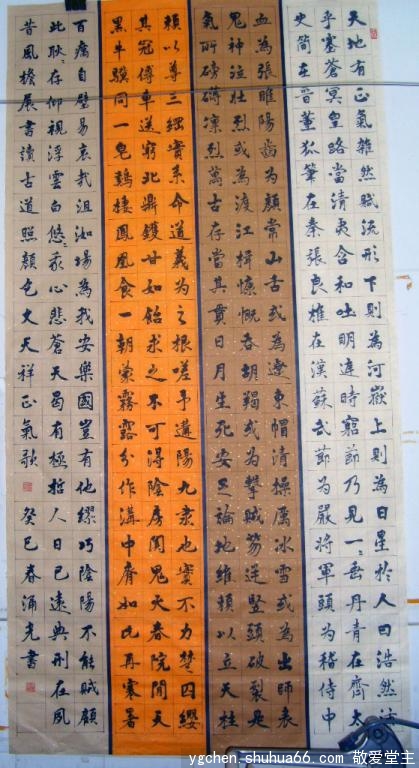 天地有正氣雜然賦流形下則為河嶽上則為日星於人曰浩然沛
乎塞蒼冥皇路當清夷含和吐明庭時窮節乃見一〻垂丹青在齊太
史簡在晉董狐筆在秦張良椎在漢蘇武節為嚴將軍頭為嵇侍中
血為張睢陽齒為顏常山舌或為遼東帽清操厲冰雪或為出師表
鬼神泣壯烈或為渡江楫慷慨吞胡羯或為擊賊笏逆豎頭破裂是
氣所磅礴凜烈萬古存當其貫日月生死安足論地維賴以立天柱
賴以尊三綱實系命道義為之根嗟予遘陽九隸也實不力楚囚纓
其冠傳車送窮北鼎鑊甘如飴求之不可得陰房闃鬼火春院閟天
黑牛驥同一皂鷄棲鳳凰食一朝蒙霧露分作溝中瘠如此再寒暑
百癘自辟易哀哉沮洳場為我安樂國豈有他繆巧陰陽不能賊顧
此耿〻存仰視浮雲白悠〻我心悲蒼天曷有極哲人日已遠典刑在夙
昔風檐展書讀古道照顏色文天祥正氣歌 癸巳春涌光書
ygchen.shuhua66.com 敬爱堂主